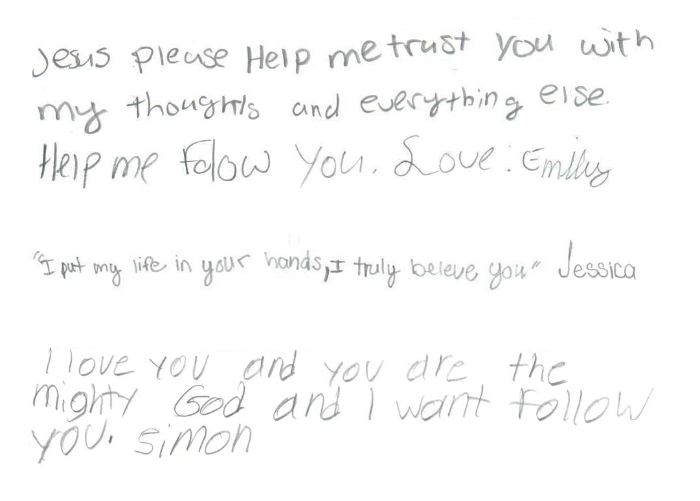 Jesus please Help me trust you with
my thoughts and everything else.
Help me Folow You. Love: Emilly
"I put my life in your hands, I truly beleve you" Jessica
I love you and you are the
mighty God and I want follow
you. Simon